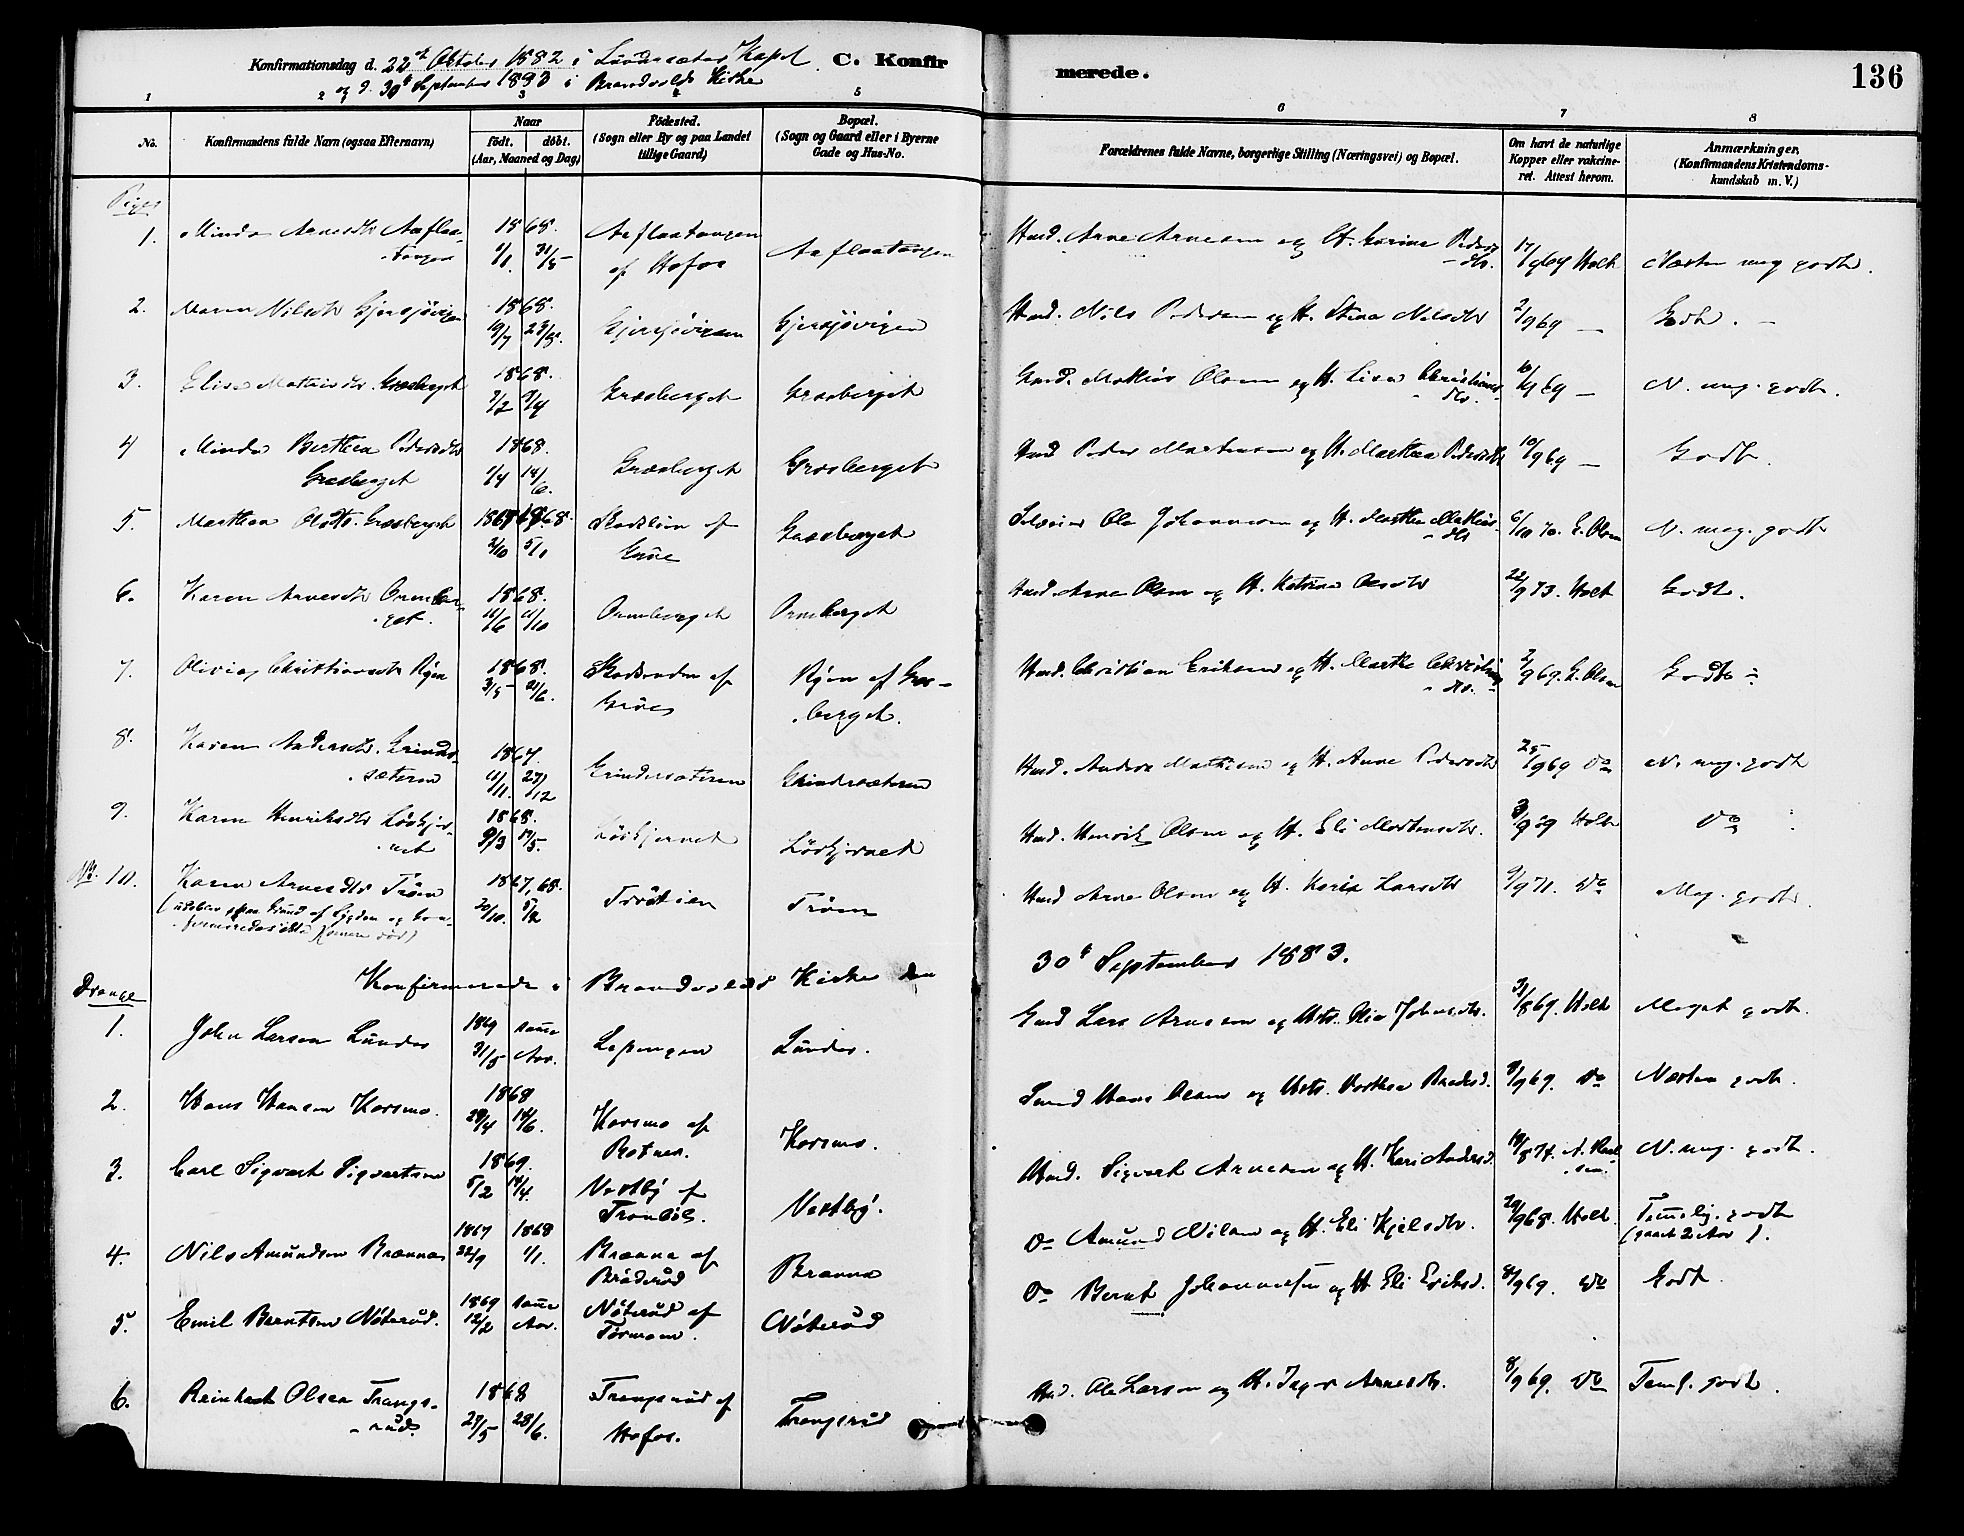 Konfirmationsdag d. 22de Oktober 1882 i Lundersæter Kapel C. Konfir
og d. 30te September 1883 i Brandvold Kirke
merede. 136
1 2 3 4 5 6 7 8
No. Konfirmandens fulde Navn (ogsaa Efternavn)
Naar födt. döbt. (Aar, Maaned og Dag)
Födested. (Sogn eller By og paa Landet tillige Gaard)
Bopæl. (Sogn og Gaard eller i Byerne Gade og Hus-No.
Forældrenes fulde Navne, borgerlige Stilling (Næringsvei) og Bopæl.
Om havt de naturlige Kopper eller vakcineret. Attest herom.
Anmærkninger, (Konfirmandens Kristendomskundskab m. V.)
Piger
1. Minda Arnesdtr Aafloatangen 1868 1/1 31/5 Aafloatangen af Hofos Aafloatangen Husd. Arne Arnesen og H. Karine Pedersdtr. 17/9 69 Holt Næsten meg godt.
2. Maren Nilsdtr Gjersjövigen 1868. 19/7 23/8. Gjersjövigen Gjersjövigen Husd. Nils Pedersen og H. Stina Nilsdtr 2/9 69 — Godt. —
3. Elise Mathisdtr. Græsberget 1868. 7/2 9/4 Græsberget Græsberget Gaard. Mathias Olsen og H. Lisa Christiansdtr. 69 — N. meg. godt.
4 Minda Berthea Pedersdtr Græsberget 1868. 1/4 14/6. Græsberget Græsberget Husd Peder Mortensen og H. Marthea Pedersdtr 10/9 69 — Godt.
5. Marthea Olsdtr. Græsberget 1868. 2/10 5/11 af Grue Græsberget Ole Johannesen og H. Marthea Mathisdtr 6/10 70. E. Olsen N. meg. godt
6. Karen Arnesdtr Ormberget. 1868. 16/6 11/10 Ormberget Ormberget Husd. Arne Olsen og H. Katrine Olsdtr 22/9 73. Holt Godt.
7. Olivia Christiansdtr Rÿen 1868. 31/5 21/6. af Grue Rÿen af Græsberget. Husd. Christian Eriksen og H. Marthe Christiansdtr. 2/9 69. E. Olsen Godt
8. Karen Andersdtr. Grindersæteren 1867. 11/11. 27/12 Grindersæteren Grindersæteren Husd. Anders Mathisen og H. Anne Pedersdtr 25/9 69 Do N. meg. godt
9. Karen Henriksdtr Lövhjernet 1868. 9/3 17/5. Lövhjernet Lövhjernet Husd. Henrik Olsen og H. Eli Mortensdtr. 3/9 69 Holt Do
10. Karen Arnesdtr Tröen 1867, 68. 20/10. Tröen Husd Arne Olsen og H. Kari Larsdtr 9/9 71. Do Meg. godt.
(udeblev paa Grund af Sygdom og
Konfirmerede i Brandvolds Kirke den 30te September 1883.
Drenge
1. John Larsen Lundes 1869 31/5 samme Aar. Lepengen Lundes. Gaard Lars Arnesen og Hstr. Olia Johnsdtr. 31/8 69. Holt Meget godt.
2. Hans Hansen Korsmo. 1868 29/4 14/6. Korsmo af Rotnes. Korsmo. Smed Hans Olsen og Hstr. Dorthea 9/9 69. Do Næsten godt.
3. Carl Sigvart Sigvartsen 1869. 5/2 18/4. Vestbÿ af Tronböl. Vestbÿ. Husd. Sigvart Arnesen og H. Kari Andersd. 19/8 74. N. meg. godt.
4. Nils Amundsen Brænna 1867 22/9 1868 1/1. Brænna af Bröderud Brænna Do Amund Nilsen og H. Eli Kjelsdtr. 29/9 68. Holt. Temelig. godt (gaaet 2 Aar).
5. Emil Berntsen Nöterud. 1869 12/2 samme Aar. Nöterud af Törmoen. Nöterud Do Bernt Johannesen og H. Eli Eriksd. 8/9 69. Do Godt.
6. Reinhart Olsen Trangsrud. 1868 27/5 28/6. Trangsrud af Hofos. Trangsrud Husd. Ole Larsen og H. Inger Arnesdtr. 8/9 69. Do Teml. godt.